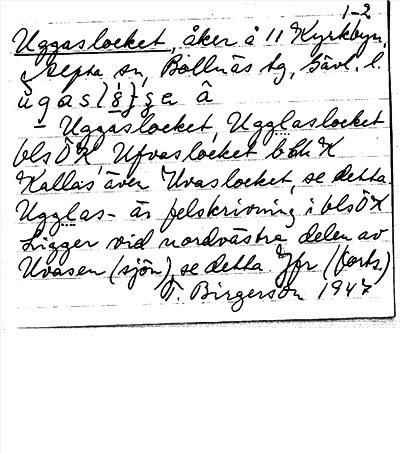 1-2
Uggaslocket, åker å 11 Kyrkbyn,
Alfta sn, Bollnäs tg, Gävl. l.
– Uggaslocket, Ugglaslocket
bls ÖK, Ufvaslocket bbh K
Kallas även Uvaslocket, se detta.
Ugglas- är felskrivning i bls ÖK
Ligger vid nordvästra delen av
Uvasen (sjön), se detta. Jfr (forts.)
T. Birgerson 1947